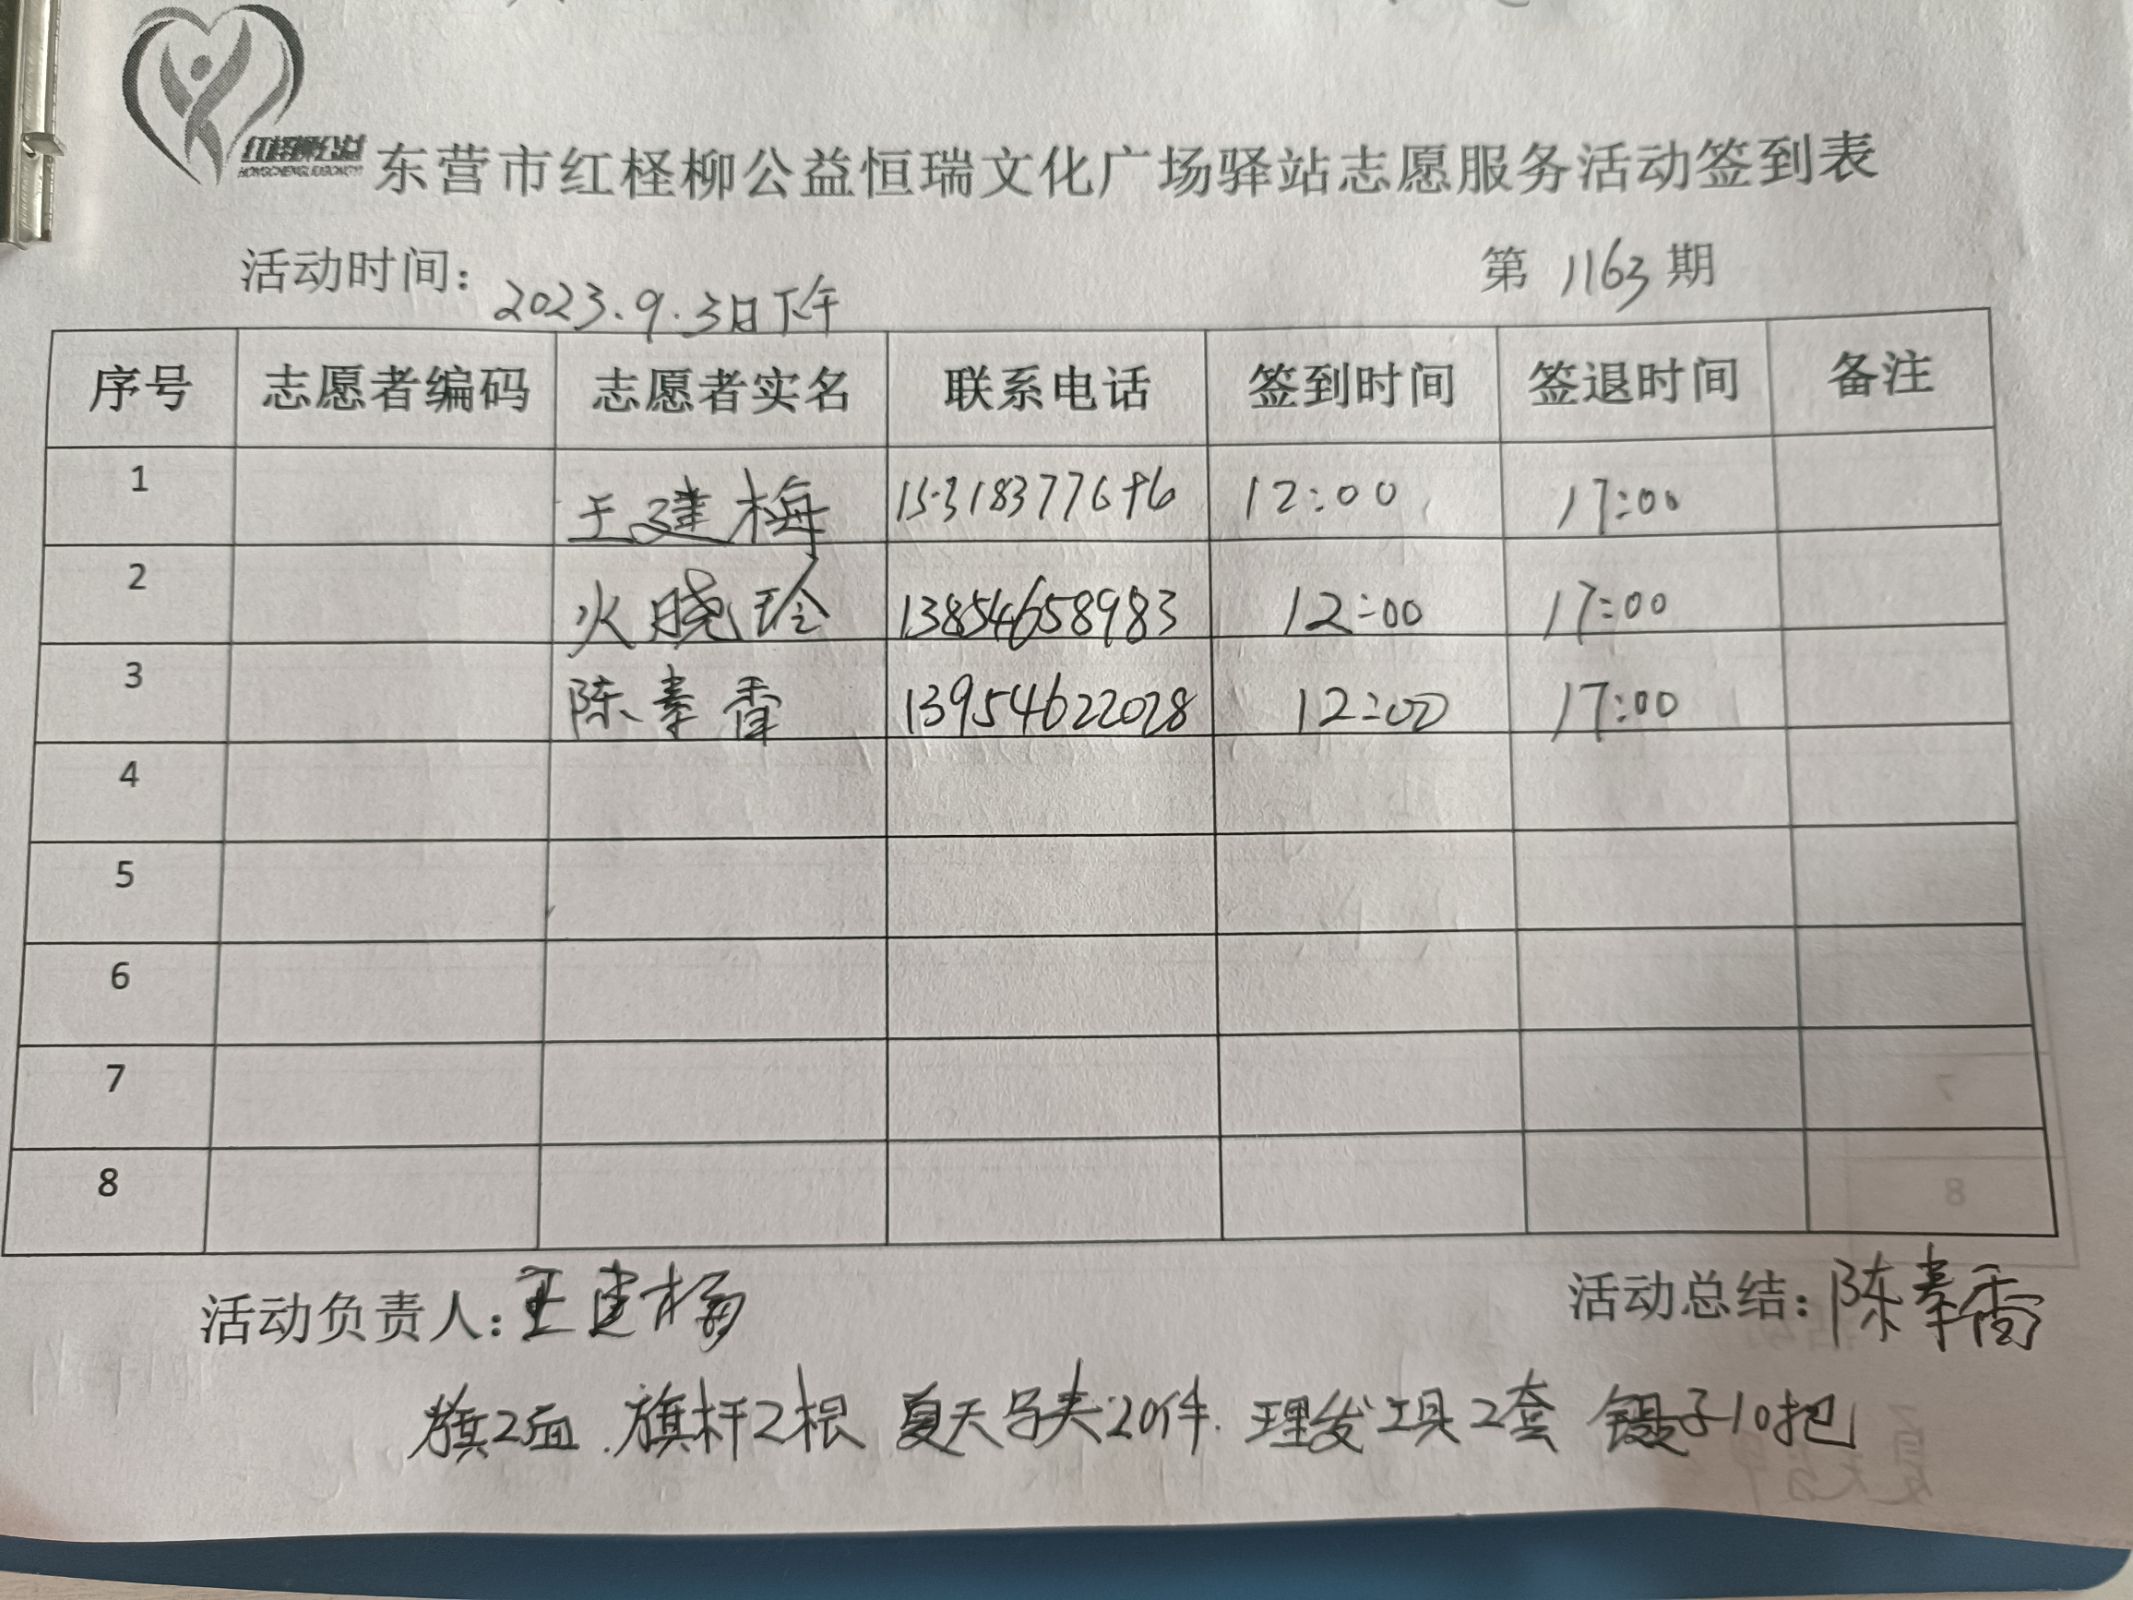 红柽柳公益
HONGCHENGLIUGONGYI
东营市红柽柳公益恒瑞文化广场驿站志愿服务活动签到表
活动时间：2023.9.3日下午 第1163期
序号 志愿者编码 志愿者实名 联系电话 签到时间 签退时间 备注
1 王建梅 153183776 12:00 17:00
2 火晓玲 13854658983 12:00 17:00
3 陈素香 13954622028 12:00 17:00
4
5
6
7
8
活动负责人：王建梅 活动总结：陈素香
旗2面.旗杆2根 夏天马夹20件.理发工具2套 镊子10把